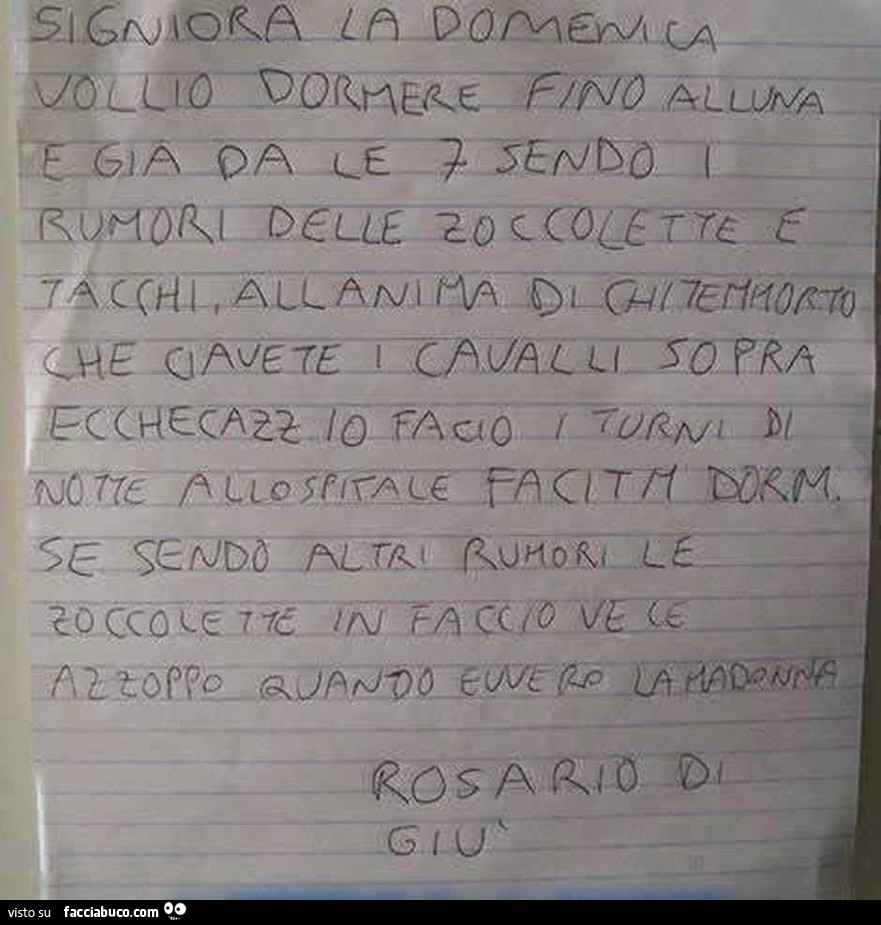 SIGNIORA LA DOMENICA
VOLLIO DORMERE FINO ALLUNA
E GIA DA LE 7 SENDO I
RUMORI DELLE ZOCCOLETTE E
TACCHI, ALLANIMA DI CHITEMMORTO
CHE CIAVETE I CAVALLI SOPRA
ECCHECAZZ IO FACIO I TURNI DI
NOTTE ALLOSPITALE FACITM DORM.
SE SENDO ALTRI RUMORI LE
ZOCCOLETTE IN FACCIO VE LE
AZZOPPO QUANDO EVVERO LA MADONNA
ROSARIO DI
GIU'
visto su facciabuco.com